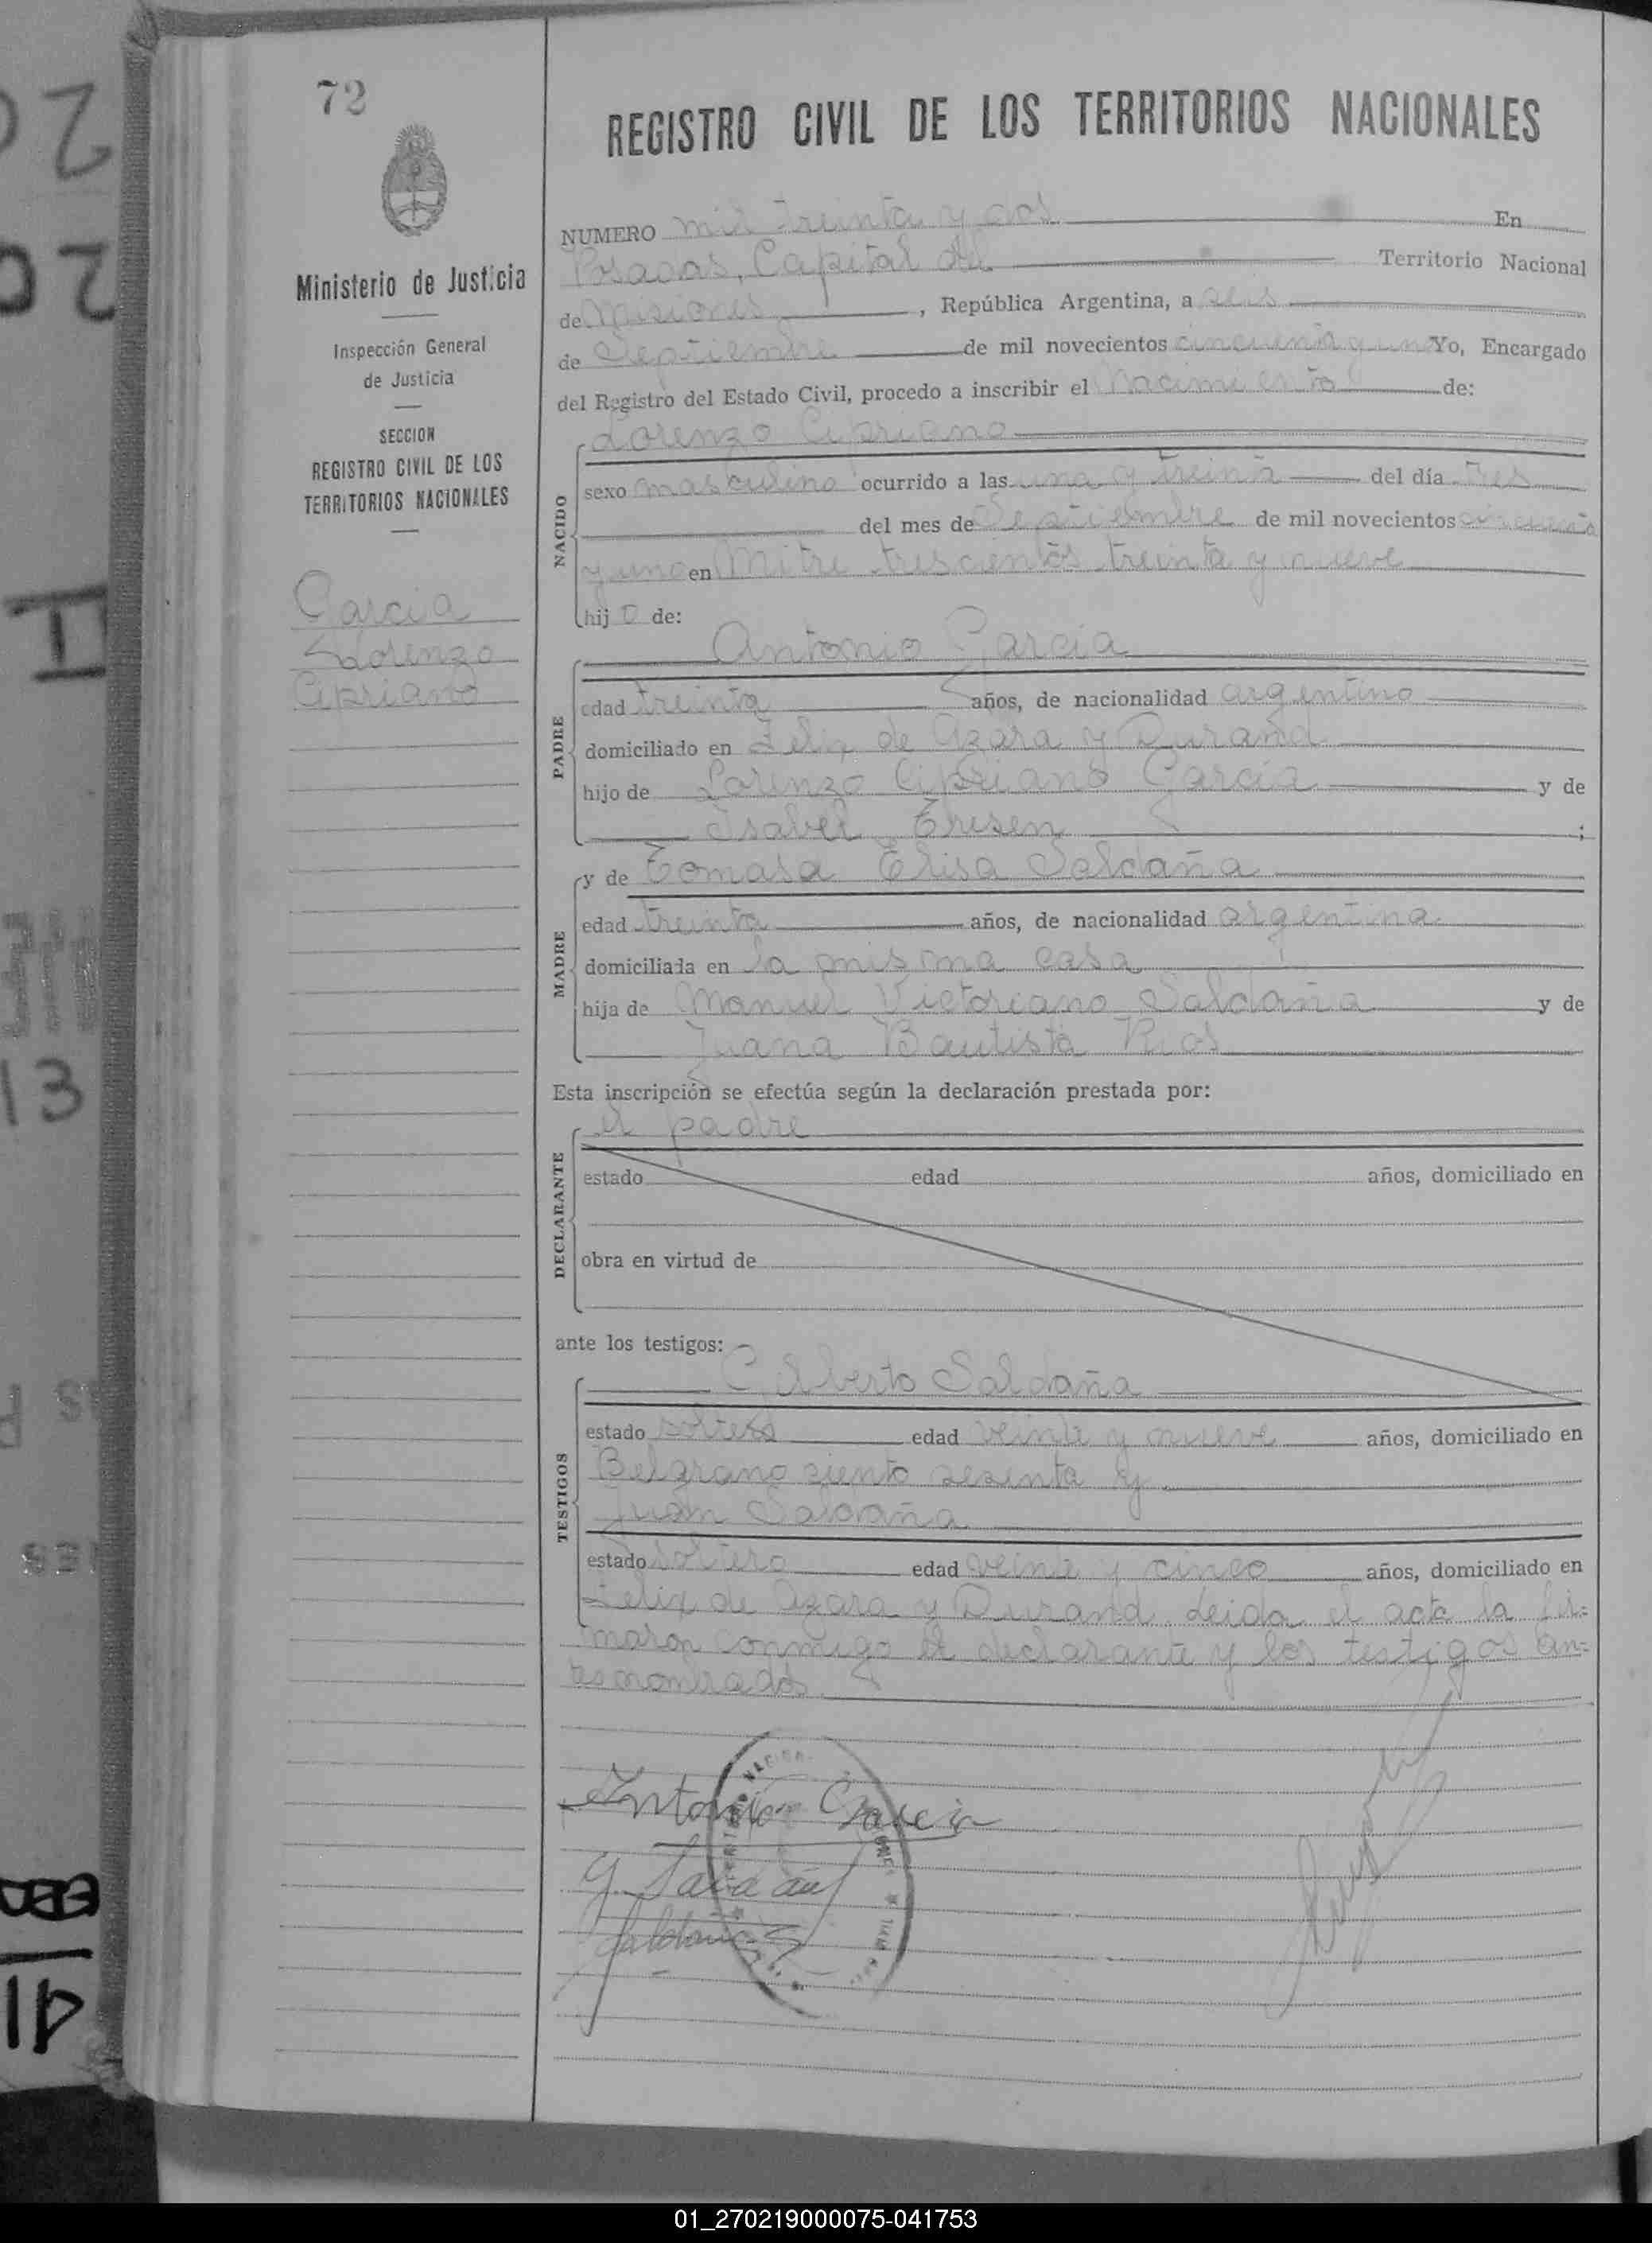 72
REGISTRO CIVIL DE LOS TERRITORIOS NACIONALES
Ministerio de Justicia
Inspección General
de Justicia
SECCION
REGISTRO CIVIL DE LOS
TERRITORIOS NACIONALES
Garcia
Lorenzo
Cipriano
NUMERO mil treinta y dos En
Posadas, Capital del Territorio Nacional
de Misiones, República Argentina, a seis
de Septiembre de mil novecientos cincuenta y uno Yo, Encargado
del Registro del Estado Civil, procedo a inscribir el Nacimiento de:
Lorenzo Cipriano
NACIDO
sexo masculino ocurrido a las una y treinta del día tres
del mes de Septiembre de mil novecientos cincuenta
y uno en Mitre trescientos treinta y nueve
hijo de:
Antonio Garcia
PADRE
edad treinta años, de nacionalidad argentino
domiciliado en Felix de Azara y Durand
hijo de Lorenzo Cipriano Garcia y de
Isabel ;
MADRE
y de Tomasa Elisa Saldaña
edad treinta años, de nacionalidad argentina
domiciliada en la misma casa
hija de Manuel Victoriano Saldaña y de
Juana Bautista Rios
Esta inscripción se efectúa según la declaración prestada por:
el padre
DECLARANTE
estado edad años, domiciliado en
obra en virtud de
ante los testigos:
Alberto Saldaña
TESTIGOS
estado soltero edad veinte y nueve años, domiciliado en
Belgrano ciento sesenta y
Juan Saldaña
estado soltero edad veinte y cinco años, domiciliado en
Felix de Azara y Durand. Leida el acta la fir=
maron conmigo el declarante y los testigos an=
tesnombrados.
Antonio Garcia
Saldaña
01_270219000075-041753